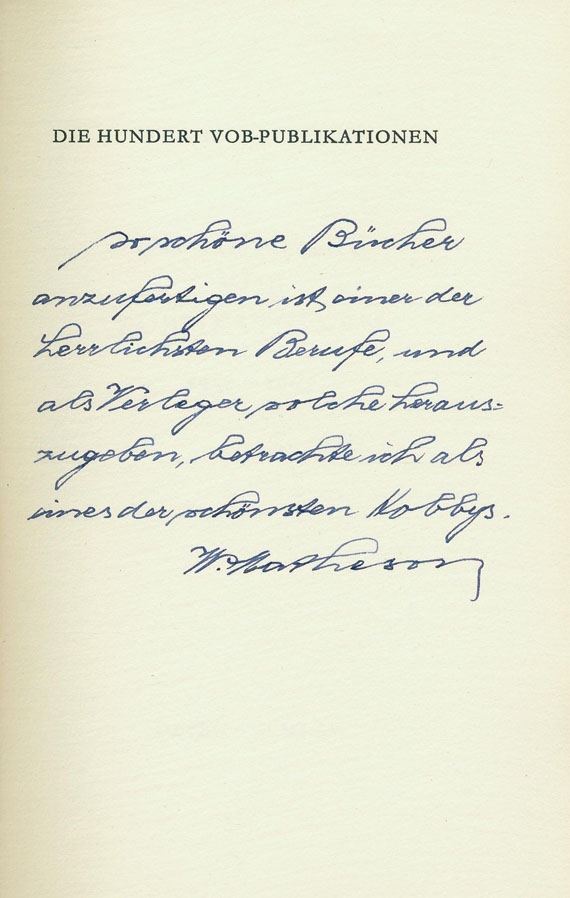 DIE HUNDERT VOB-PUBLIKATIONEN
so schöne Bücher
anzufertigen ist, einer der
herrlichsten Berufe, und
als Verleger solche heraus=
zugeben, betrachte ich als
eines der schönsten Hobbys.
W. Matheson